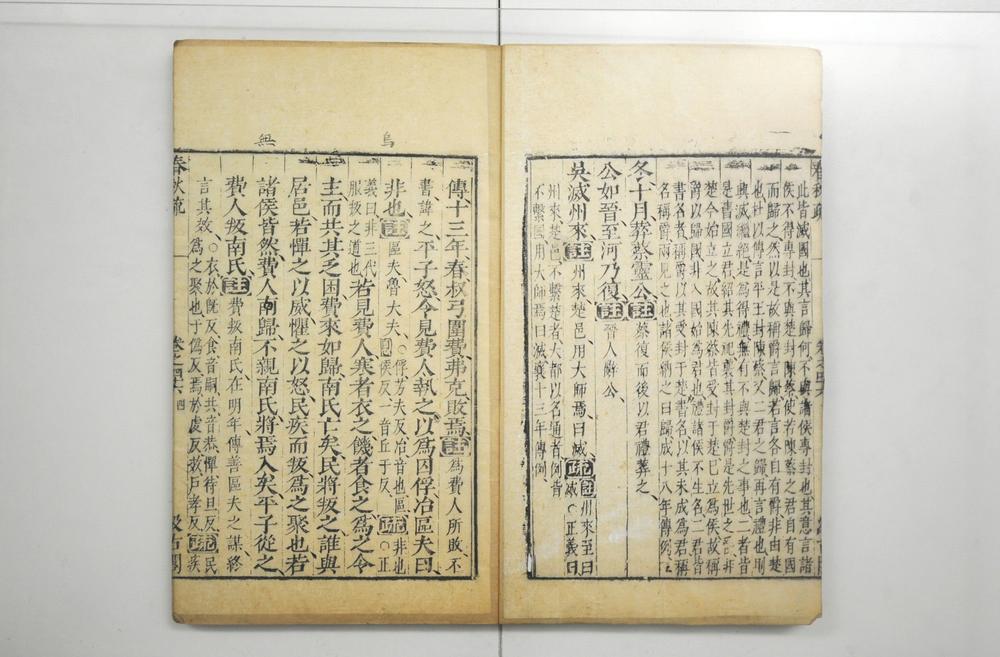 春秋疏
此皆滅國也其言歸何不與諸侯專封也其意言諸
侯不得專封不與楚封陳蔡使若陳蔡之君自有國
而歸之然以是故稱爵言歸若言各自有爵非由楚
也杜以傳言平王封陳蔡又二君之歸再言禮也則
興滅繼絕是爲得禮無有不與楚封之事也二者皆
是舊國立君紹其先祀襲其封爵爵是先世之爵非
楚今始立之故其陳蔡皆受封于楚巳立爲侯故稱
爵以歸國非入國始爲君也禮諸侯不生名二君皆
書名者稱爵以其受封于楚書名以其未成爲君稱
名稱爵兩見之也諸侯納之曰歸成十八年傳例
冬十月葬蔡靈公註蔡復而後以君禮葬之
公如晉至河乃復註晉人辭公
吳滅州來註州來楚邑用大師焉曰滅疏註州來至曰滅○正義曰
州來楚邑不繫楚者大都以名通者例皆
不繫國用大師焉曰滅襄十三年傳例
烏
無
傳十三年春叔弓圍費弗克敗焉註爲費人所敗不
書諱之平子怒令見費人執之以爲囚俘冶區夫曰
非也註區夫魯大夫○俘芳夫反冶音也區烏侯反一音丘于反疏非也○正
義曰非三代
服叛之道也若見費人寒者衣之饑者食之爲之令
主而共其乏困費來如歸南氏亡矣民將叛之誰與
居邑若憚之以威懼之以怒民疾而叛爲之聚也若
諸侯皆然費人南歸不親南氏將焉入矣平子從之
費人叛南氏註費叛南氏在明年傳善區夫之謀終
言其效○衣於旣反食音嗣共音恭憚待旦反疏民疾
爲之聚也于僞反焉於虔反效戶孝反
春秋疏
卷之四十六
四
汲古閣